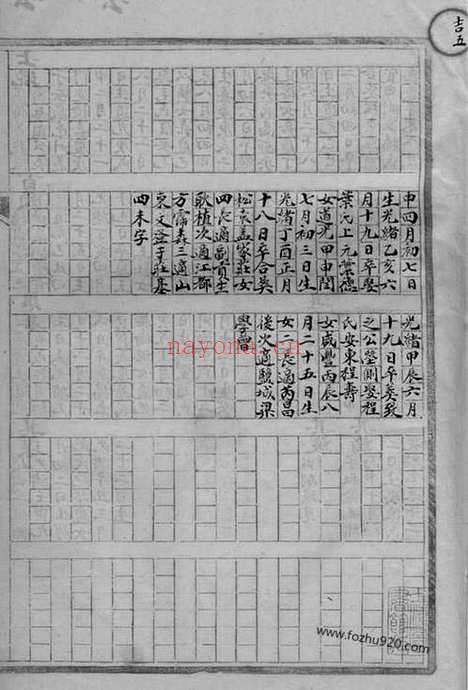 吉五
申四月初七日
生光緒乙亥六
月十九日卒娶
葉氏上元業德
女道光甲申閏
七月初三日生
光緒丁酉正月
十八日卒合葬
松家荡紫莊女
四長適副貢生
耿植次適江都
方霖森三適山
東文登于莊基
四未字
光緒甲辰六月
十九日卒葬致
之公塋側娶程
氏安東程壽
女咸豐丙辰八
月二十五日生
女二長適芮昌
後次適鹽城梁
學曾
nayona.cn
www.fozhu920.com